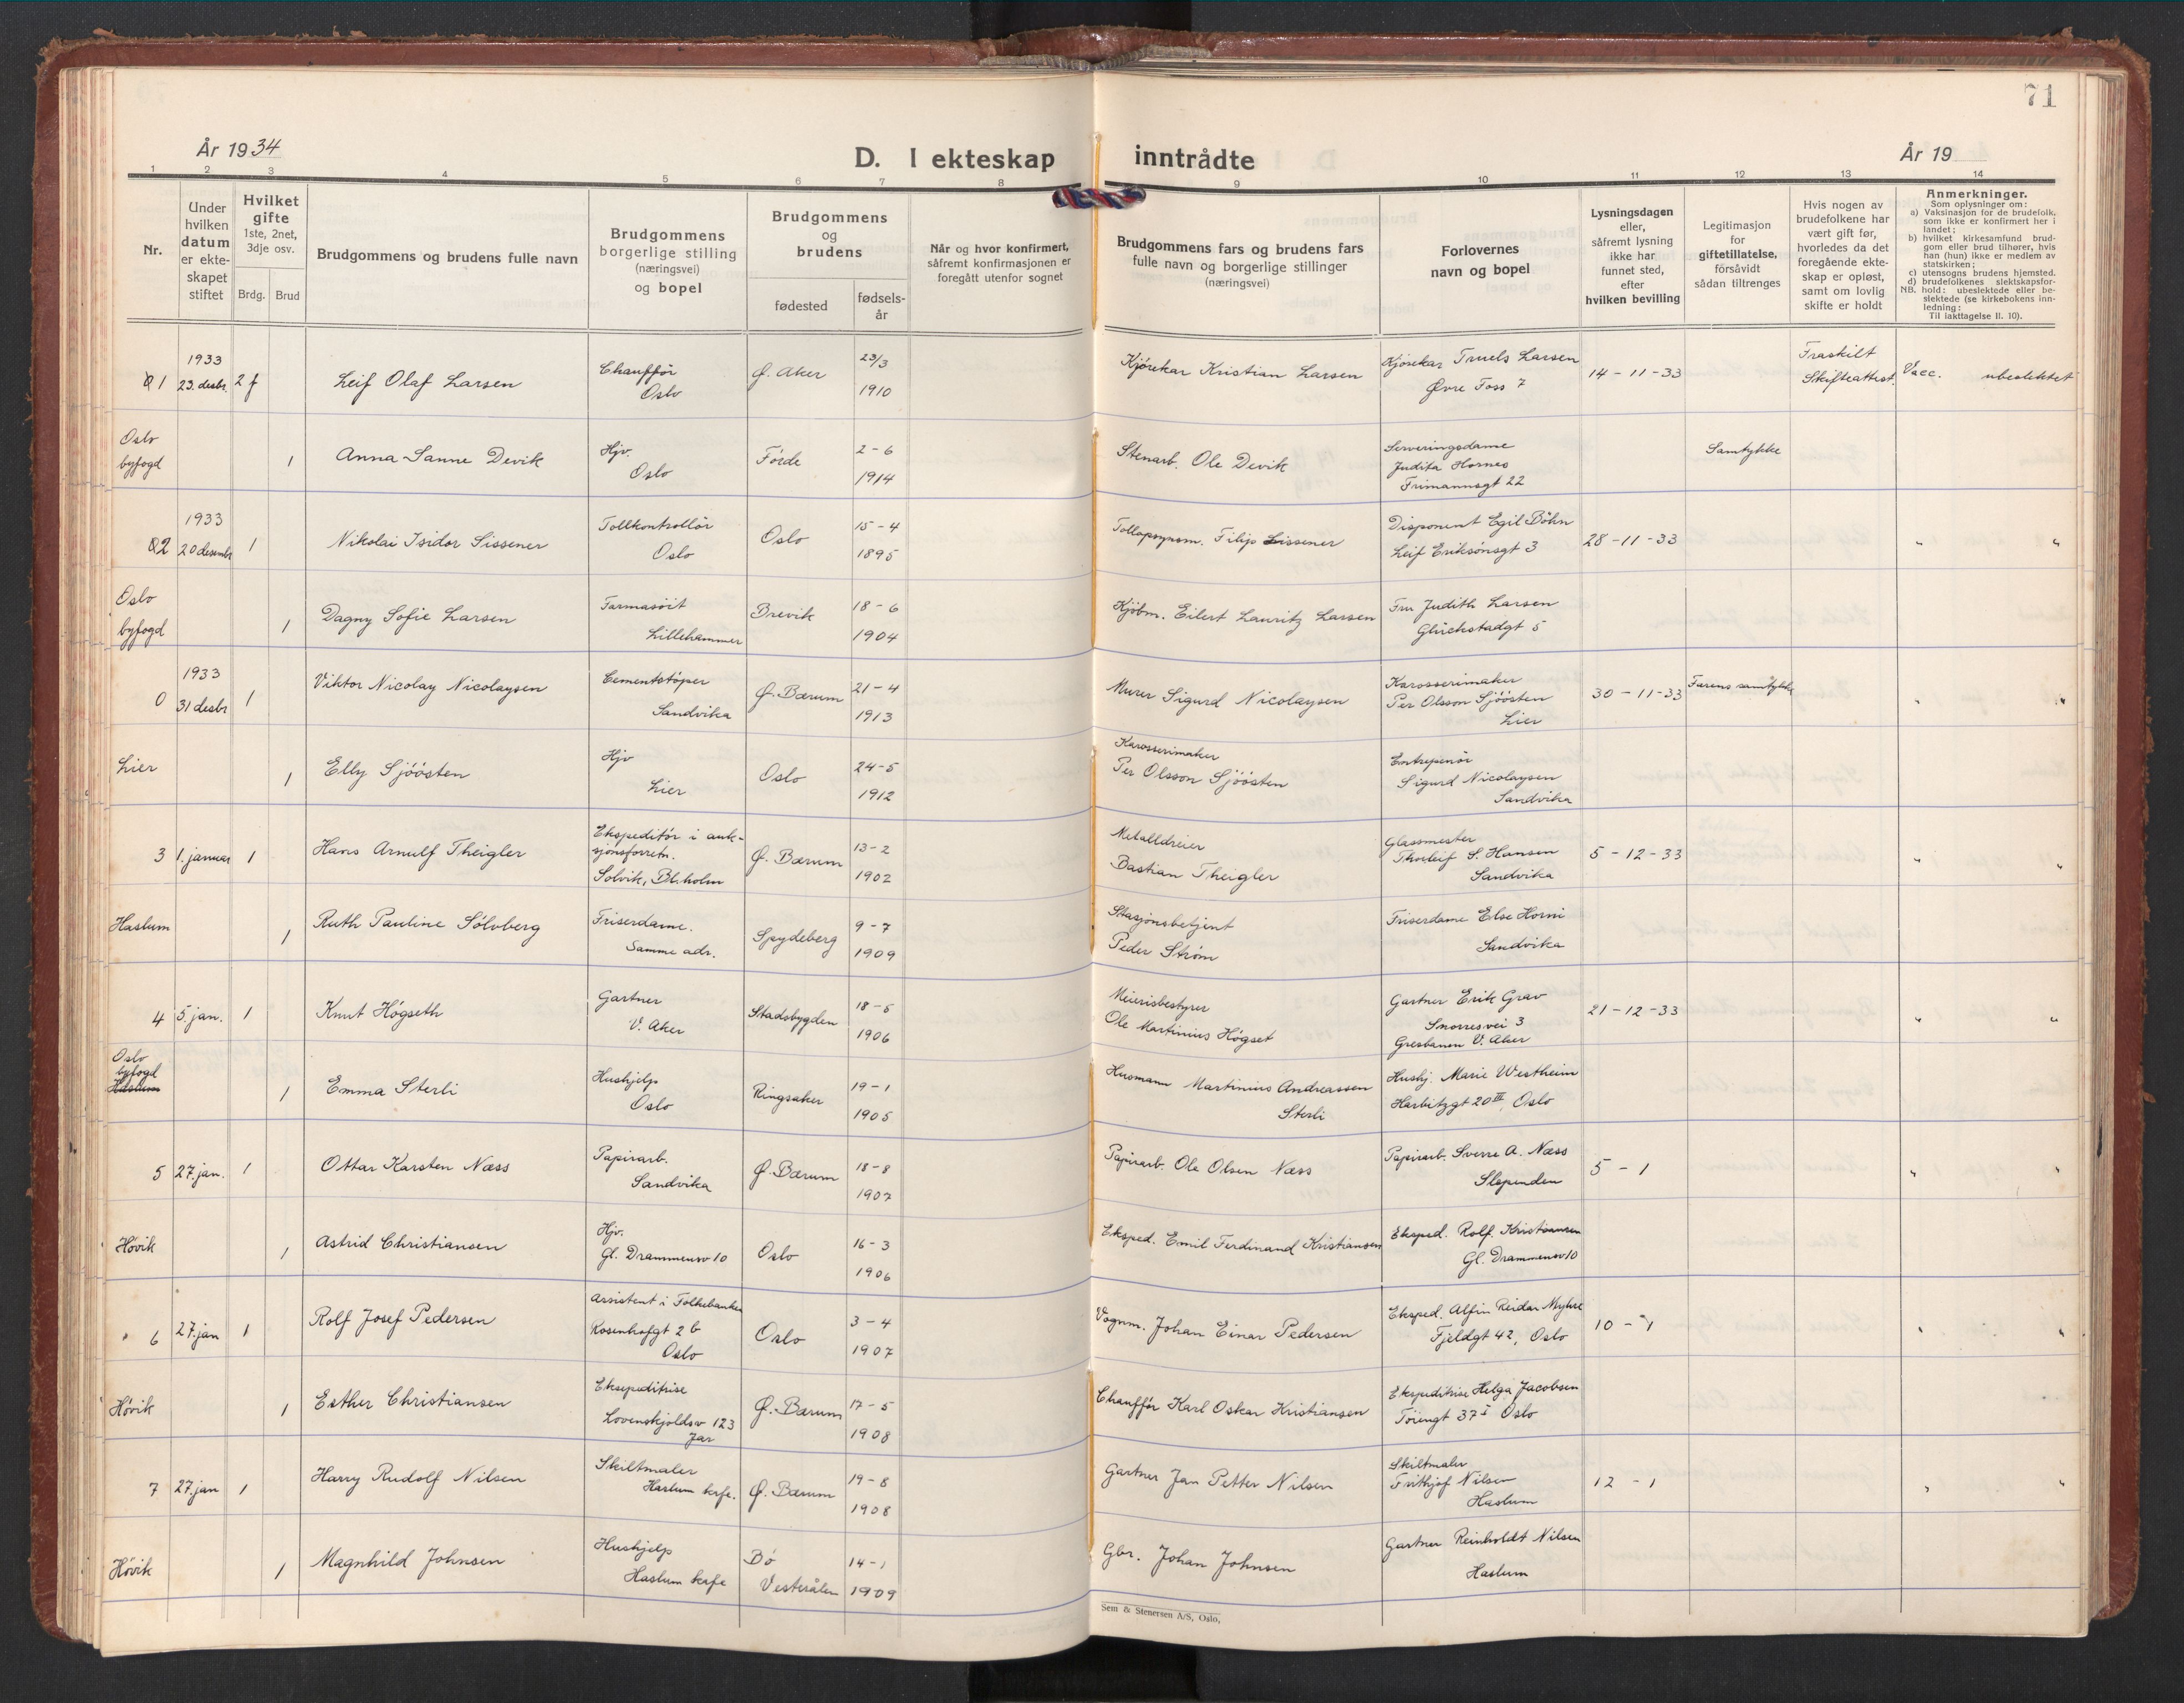 71
År 1934
D. I ekteskap inntrådte
År 19
1 2 3 4 5 6 7 8 9 10 11 12 13 14
Nr.
Under hvilken datum er ekte-skapet stiftet
Hvilket gifte 1ste, 2net, 3dje osv.
Brdg. Brud
Brudgommens og brudens fulle navn
Brudgommens borgerlige stilling (næringsvei) og bopel
Brudgommens og brudens
fødested
fødsels-år
Når og hvor konfirmert, såfremt konfirmasjonen er foregått utenfor sognet
Brudgommens fars og brudens fars fulle navn og borgerlige stillinger (næringsvei)
Forlovernes navn og bopel
Lysningsdagen eller, såfremt lysning ikke har funnet sted, efter hvilken bevilling
Legitimasjon for giftetillatelse, försåvidt sådan tiltrenges
Hvis nogen av brudefolkene har vært gift før, hvorledes da det foregående ekte-skap er opløst, samt om lovlig skifte er holdt
Anmerkninger.
Som oplysninger om:
a) Vaksinasjon for de brudefolk, som ikke er konfirmert her i landet;
b) hvilket kirkesamfund brud-gom eller brud tilhører, hvis han (hun) ikke er medlem av statskirken;
c) utensogns brudens hjemsted.
d) brudefolkenes slektskapsfor-hold: ubeslektede eller be-slektede (se kirkebokens inn-ledning:
NB. Til iakttagelse II. 10).
1 1933 23. desbr. 2 f Leif Olaf Larsen Chauffør Oslo Ø. Aker 23/3 1910 Kjørekar Kristian Larsen Kjørekar Truels Larsen Øvre Foss 7 14-11-33 Fraskilt Skifteattest. Vacc. ubeslektet
Oslo byfogd 1 Anna Sanne Devik Hjv. Oslo Førde 2-6 1914 Stenarb. Ole Devik Serveringsdame Judita Hornes Frimannsgt 22 Samtykke
2 1933 20 desembr 1 Nikolai Isidor Sissener Tollkontrollør Oslo Oslo 15-4 1895 Tollopsynsm. Filip Sissener Disponent Egil Böhn Leif Eriksönsgt 3 28-11-33 " "
Oslo byfogd 1 Dagny Sofie Larsen Farmasöit Lillehammer Brevik 18-6 1904 Kjöbm. Eilert Lauritz Larsen Fru Judith Larsen Glückstadgt 5
0 1933 31 desbr 1 Viktor Nicolay Nicolaysen Cementstöper Sandvika Ø. Bærum 21-4 1913 Murer Sigurd Nicolaysen Karosserimaker Per Olsson Sjöösten Lier 30-11-33 Farens samtykke " "
Lier 1 Elly Sjöösten Hjv Lier Oslo 24-5 1912 Karosserimaker Per Olsson Sjöösten Entrepenör Sigurd Nicolaysen Sandvika
3 1. januar 1 Hans Arnulf Theigler Ekspeditör i auk-sjonsforretn. Solvik, Bl.holm Ø. Bærum 13-2 1902 Metalldreier Bastian Theigler Glassmester Thorleif S. Hansen Sandvika 5-12-33 " "
Haslum 1 Ruth Pauline Sölvberg Friserdame. Samme adr. Spydeberg 9-7 1909 Stasjonsbetjent Peder Strøm Friserdame Else Horni Sandvika
4 5. jan. 1 Knut Högseth Gartner V. Aker Stadsbygden 18-5 1906 Meieribestyrer Ole Martinius Högset Gartner Erik Grav Snorresvei 3 Gresbanen V. Aker 21-12-33 " "
Oslo byfogd Haslum 1 Emma Sterli Hushjelp Oslo Ringsaker 19-1 1905 Husmann Martinius Andreassen Sterli Hushj. Marie Westheim Harbitzgt 20 III, Oslo
5 27. jan. 1 Ottar Karsten Næss Papirarb. Sandvika Ø. Bærum 18-8 1907 Papirarb. Ole Olsen Næss Papirarb. Sverre A. Næss Slependen 5-1 " "
Hövik 1 Astrid Christiansen Hjv. Gl. Drammensv 10 Oslo 16-3 1906 Eksped. Emil Ferdinand Kristiansen Eksped. Rolf Kristiansen Gl. Drammensv 10
6 27. jan 1 Rolf Josef Pedersen Assistent i Folkebanken Rosenhofgt 2 b Oslo Oslo 3-4 1907 Vognm. Johan Einar Pedersen Eksped. Alfin Reidar Myhre Fjeldgt 42, Oslo 10-1 " "
Hövik 1 Esther Christiansen Ekspeditrise Lovenskjoldsv 123 Jar Ø. Bærum 17-5 1908 Chauffør Karl Oskar Kristiansen Ekspeditrise Helga Jacobsen Töiengt 37 I Oslo
7 27. jan 1 Harry Rudolf Nilsen Skiltmaler Haslum krfe. Ø. Bærum 19-8 1908 Gartner Jan Petter Nilsen Skiltmaler Frithjof Nilsen Haslum 12-1 " "
Hövik 1 Magnhild Johnsen Hushjelp Haslum krfe Bö Vesterålen 14-1 1909 Gbr. Johan Johnsen Gartner Reinholdt Nilsen Haslum
Sem & Stenersen A/S, Oslo.